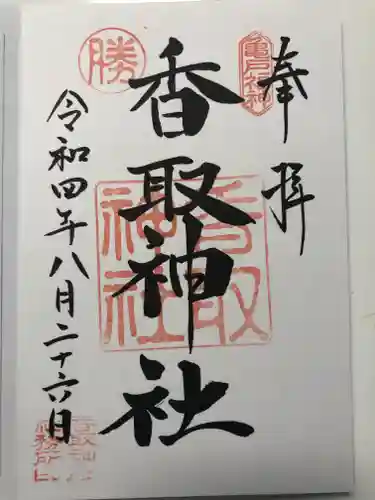 奉拝
亀戸総
香取神社
香取神社
勝
令和四年八月二十六日
香取神
社務所